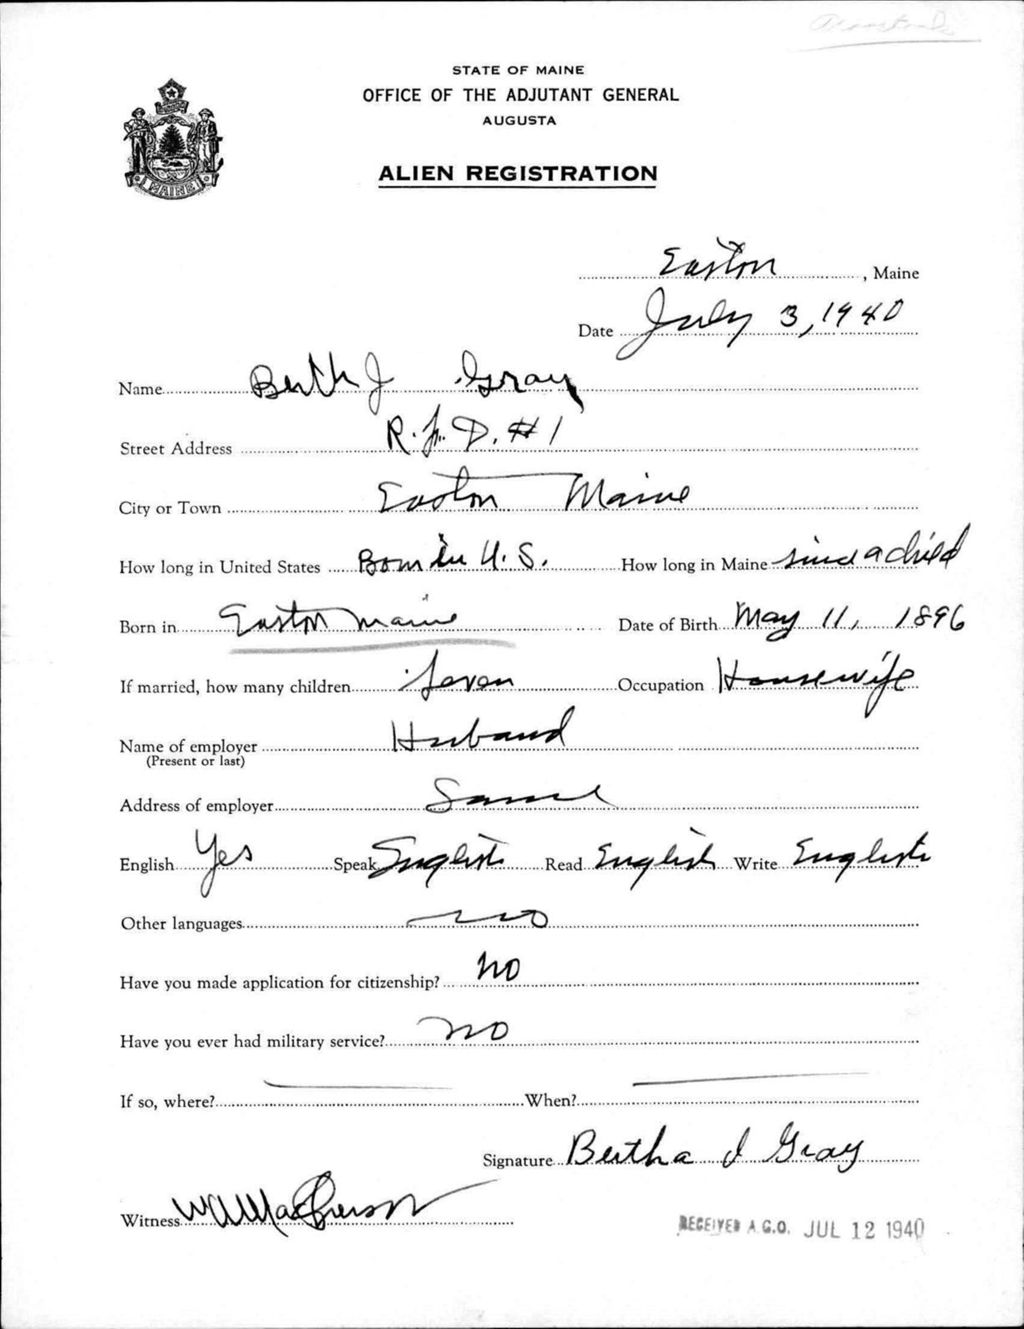 STATE OF MAINE
OFFICE OF THE ADJUTANT GENERAL
AUGUSTA
MAINE
ALIEN REGISTRATION
Easton, Maine
Date July 3, 1940
Name Berth J Gray
Street Address R.F.D. #1
City or Town Easton Maine
How long in United States Born in U.S. How long in Maine since a child
Born in Easton Maine Date of Birth May 11, 1896
If married, how many children Seven Occupation Housewife
Name of employer Husband
(Present or last)
Address of employer Same
English Yes Speak English Read English Write English
Other languages no
Have you made application for citizenship? no
Have you ever had military service? no
If so, where? When?
Signature Bertha J Gray
Witness MacPherson
RECEIVED A.G.O. JUL 12 1940